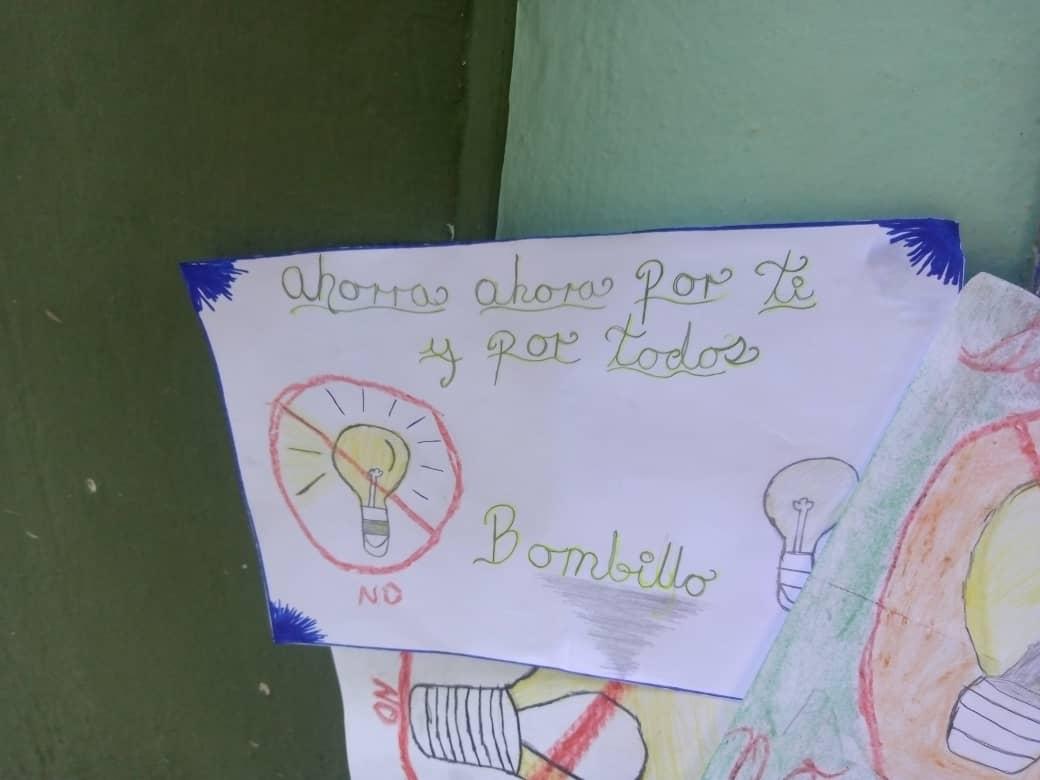 ahorra ahora por ti
y por todos
NO
Bombillo
NO